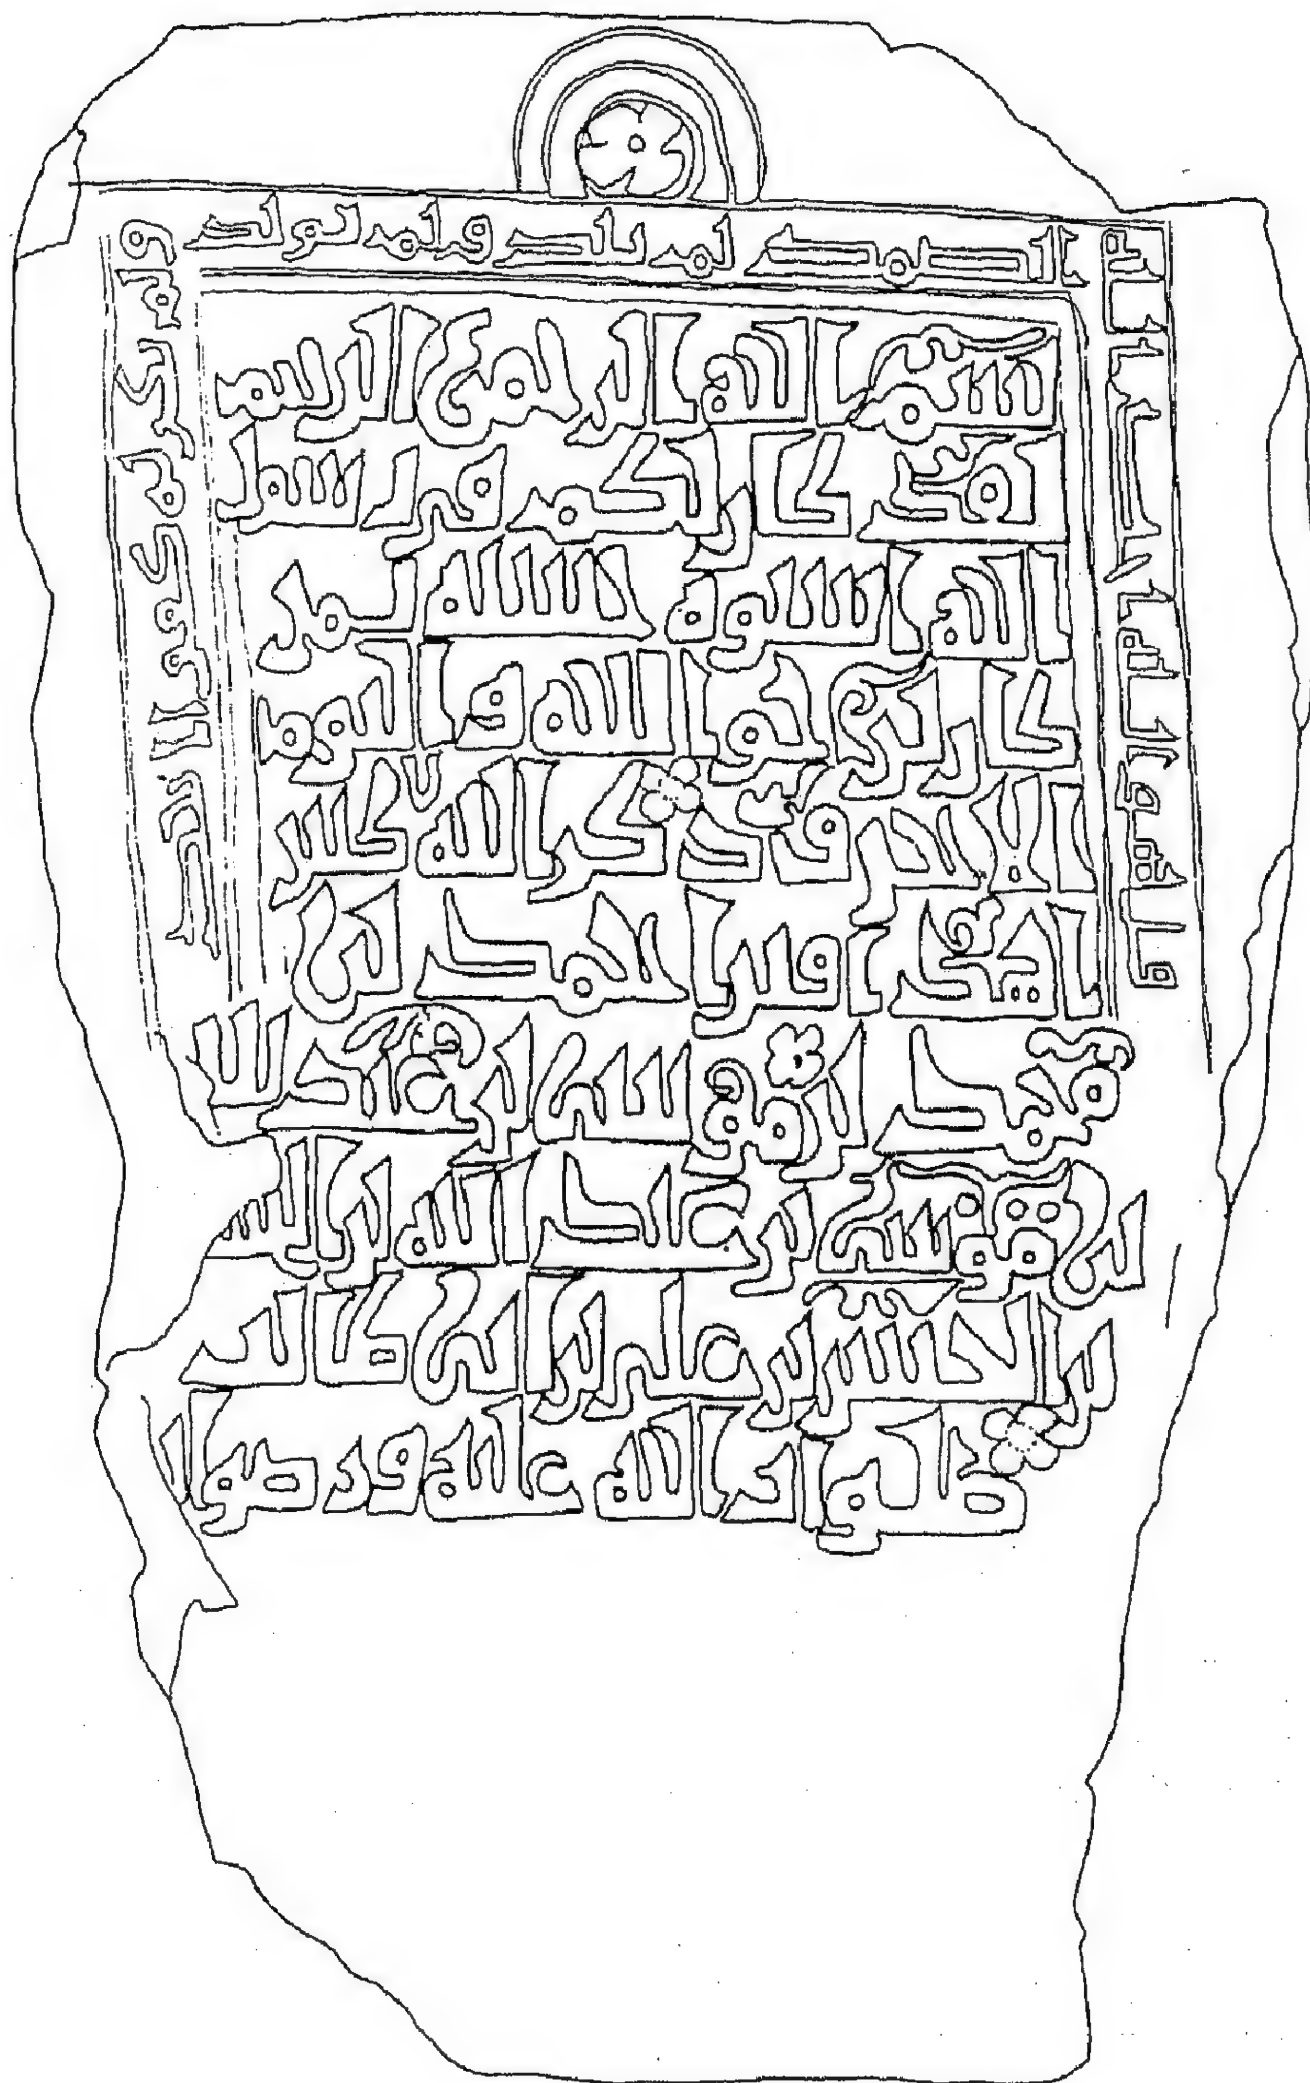 قل هو الله احد الله
الصمد لم يلد ولم يولد و
لم يكن له كفوا احد
بسم الله الرحمن الرحيم
لقد كان لكم في رسول
الله اسوة حسنة لمن
كان يرجوا الله واليوم
الاخر وذكر الله كثير
ا هذا قبر احمد بن
محمد بن سليمن بن عبد الله
بن موسى بن عبد الله بن الحسن
بن الحسن بن علي بن ابي طالب
صلوات الله عليه ورضوا